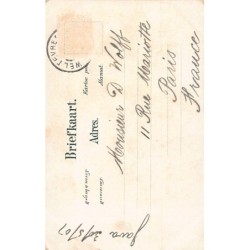 Briefkaart.
Adres.
Monsieur D Wolff
11 Rue Mariotte
Paris
France
Java 30/5/07